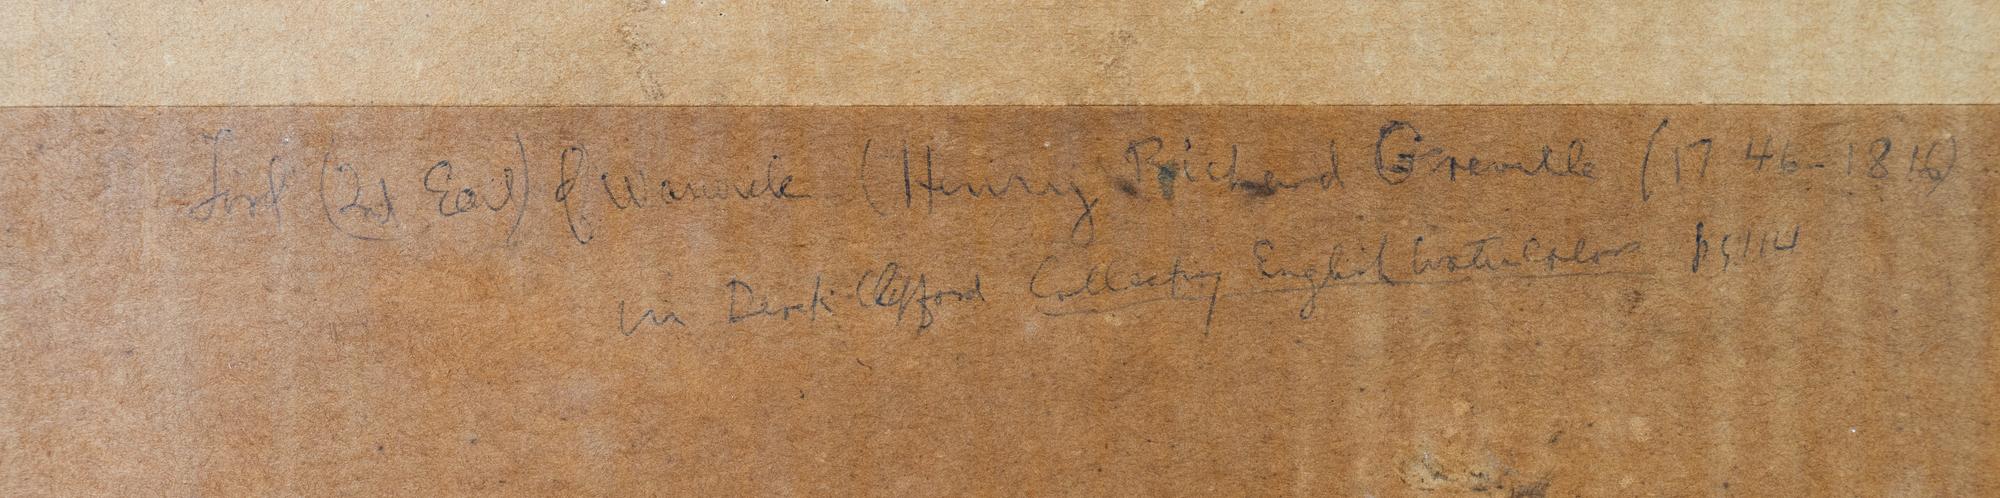 Lord (2nd Earl) of Warwick (Henry Richard Greville (1746-1816)
in Derek Clifford Collecting English Watercolors